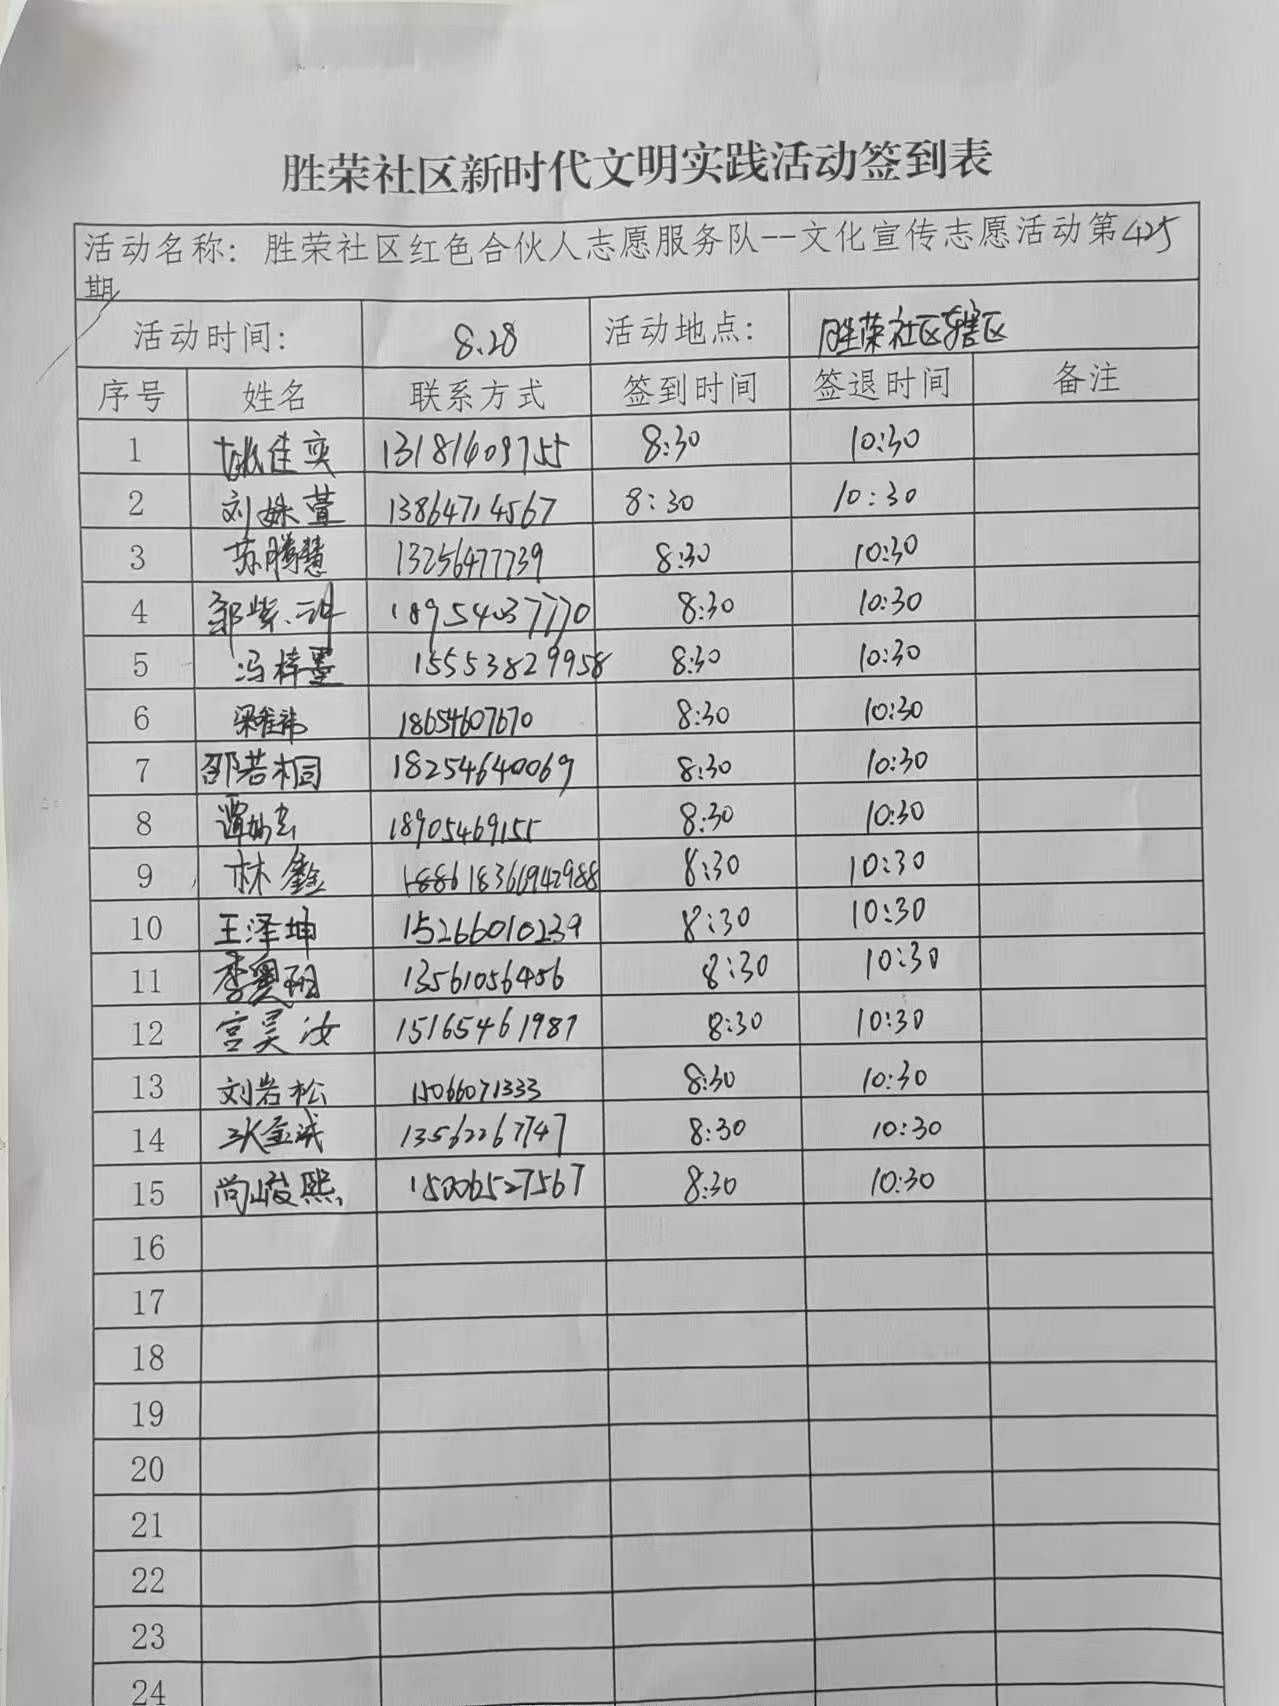 胜荣社区新时代文明实践活动签到表
活动名称：胜荣社区红色合伙人志愿服务队--文化宣传志愿活动第425
期
活动时间： 8.28 活动地点： 胜荣社区辖区
序号 姓名 联系方式 签到时间 签退时间 备注
1 姚佳奕 13181609755 8:30 10:30
2 刘姝萱 13864714567 8:30 10:30
3 苏腾慧 13256477739 8:30 10:30
4 18954037770 8:30 10:30
5 冯梓墨 15553829958 8:30 10:30
6 18654607670 8:30 10:30
7 邵若桐 18254640069 8:30 10:30
8 18905469155 8:30 10:30
9 林鑫 8:30 10:30
10 王泽坤 15266010239 8:30 10:30
11 13561056456 8:30 10:30
12 宫昊汝 15165461987 8:30 10:30
13 刘岩松 15066071333 8:30 10:30
14 张金诚 13562267747 8:30 10:30
15 尚峻熙 15006527567 8:30 10:30
16
17
18
19
20
21
22
23
24